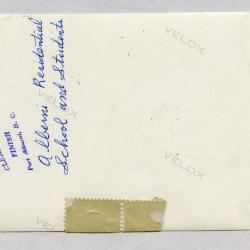 VELOX
Alberni Residential
School and Students
CLEAR
FINISH
Port Alberni, B. C.
VELOX
VELOX